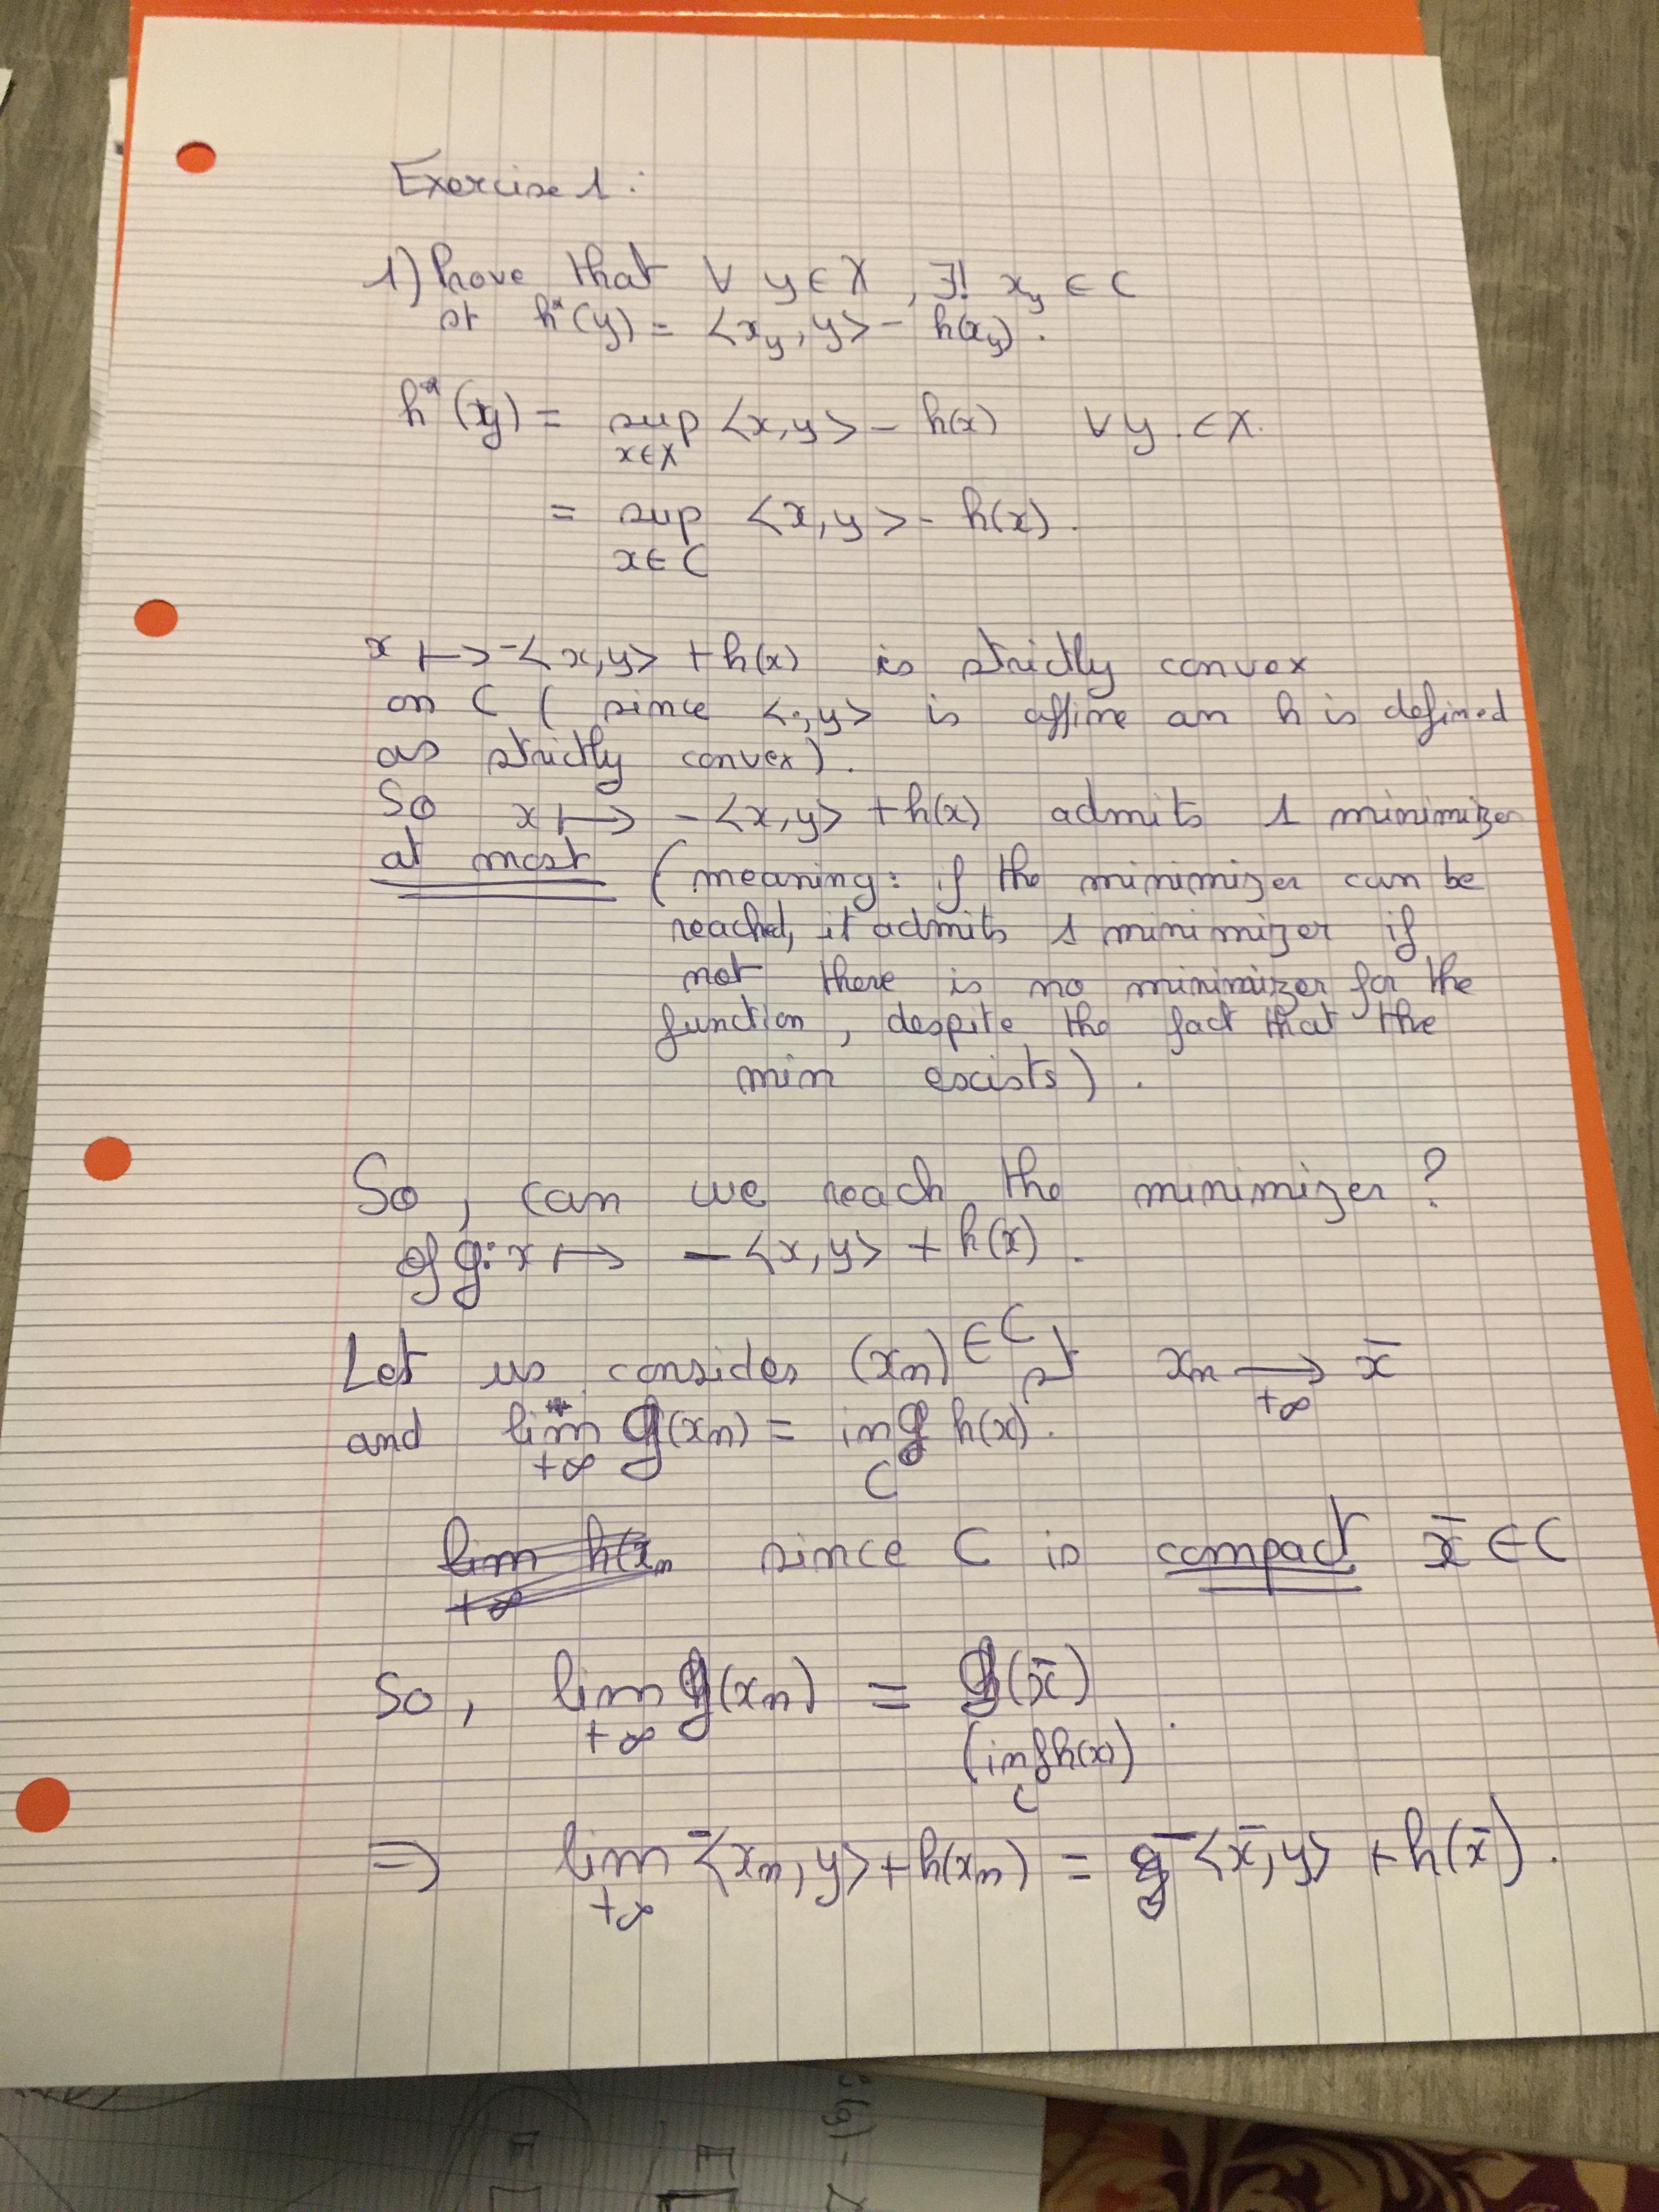 Exercise 1:
1) Prove that ∀ y ∈ X, ∃! x_y ∈ C
st h*(y) = <x_y, y> - h(x_y).
h*(y) = sup <x,y> - h(x) ∀ y ∈ X.
x∈X
= sup <x,y> - h(x).
x∈C
x ↦ -<x,y> + h(x) is strictly convex
on C (since <.,y> is affine an h is defined
as strictly convex).
So x ↦ -<x,y> + h(x) admits 1 minimizer
at most (meaning: if the minimizer can be
reached, it admits 1 minimizer if
not there is no minimizer for the
function, despite the fact that the
min exists).
So, can we reach the minimizer?
of g: x ↦ -<x,y> + h(x).
Let us consider (x_n) ∈ C st x_n → x̄
+∞
and lim g(x_n) = inf h(x).
+∞ C
lim h(x_n since C is compact x̄ ∈ C
+∞
So, lim g(x_n) = g(x̄).
+∞ (inf h(x))
C
⇒ lim -<x_n, y> + h(x_n) = -<x̄, y> + h(x̄).
+∞